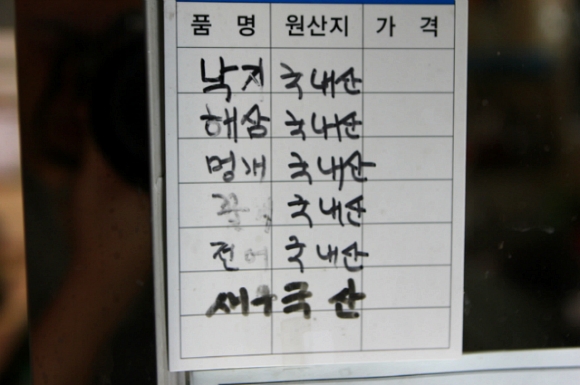 품 명 원산지 가 격
낙지 국내산
해삼 국내산
멍개 국내산
국내산
전어 국내산
새우 국산